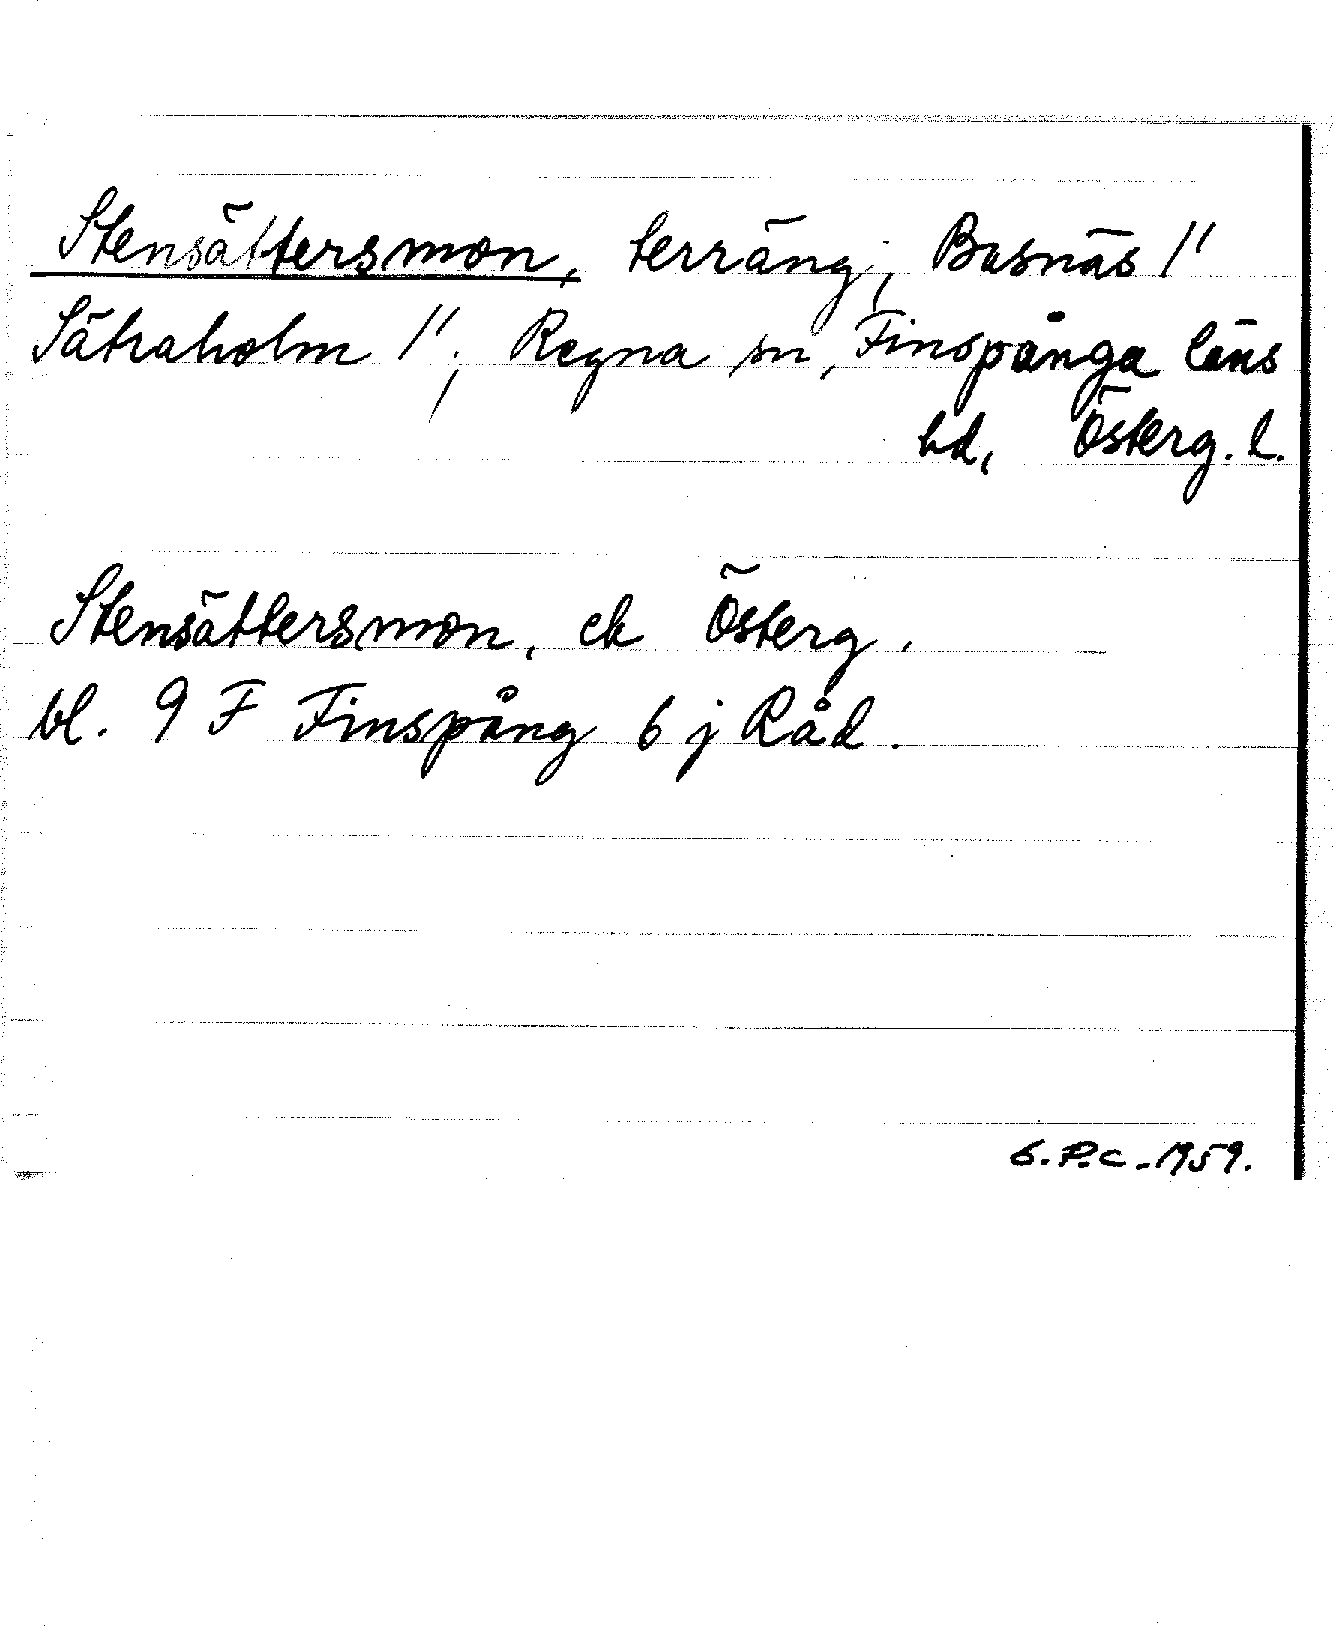 Stensättersmon, terräng, Basnäs 1"
Sätraholm 1", Regna sn, Finspånga läns
hd, Österg. l.
Stensättersmon, ek Österg.
bl. 9 F Finspång 6 j Råd.
G.P.C. 1959.